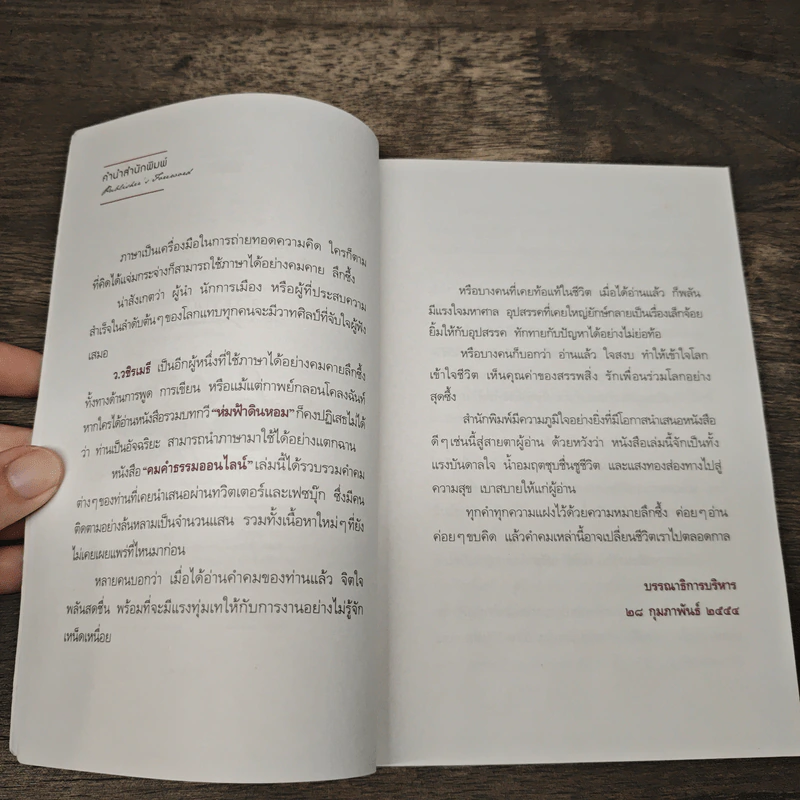 คำนำสำนักพิมพ์
Publisher's Foreword
ภาษาเป็นเครื่องมือในการถ่ายทอดความคิด ใครก็ตาม
ที่คิดได้แจ่มกระจ่างก็สามารถใช้ภาษาได้อย่างคมคาย ลึกซึ้ง
น่าสังเกตว่า ผู้นำ นักการเมือง หรือผู้ที่ประสบความ
สำเร็จในลำดับต้นๆ ของโลกแทบทุกคนจะมีวาทศิลป์ที่จับใจผู้ฟัง
เสมอ
ว.วชิรเมธี เป็นอีกผู้หนึ่งที่ใช้ภาษาได้อย่างคมคายลึกซึ้ง
ทั้งทางด้านการพูด การเขียน หรือแม้แต่กาพย์กลอนโคลงฉันท์
หากใครได้อ่านหนังสือรวมบทกวี "ห่มฟ้าดินหอม" ก็คงปฏิเสธไม่ได้
ว่า ท่านเป็นอัจฉริยะ สามารถนำภาษามาใช้ได้อย่างแตกฉาน
หนังสือ "คมคำธรรมออนไลน์" เล่มนี้ได้รวบรวมคำคม
ต่างๆ ของท่านที่เคยนำเสนอผ่านทวิตเตอร์และเฟซบุ๊ก ซึ่งมีคน
ติดตามอย่างล้นหลามเป็นจำนวนแสน รวมทั้งเนื้อหาใหม่ๆ ที่ยัง
ไม่เคยเผยแพร่ที่ไหนมาก่อน
หลายคนบอกว่า เมื่อได้อ่านคำคมของท่านแล้ว จิตใจ
พลันสดชื่น พร้อมที่จะมีแรงทุ่มเทให้กับการงานอย่างไม่รู้จัก
เหน็ดเหนื่อย
หรือบางคนที่เคยท้อแท้ในชีวิต เมื่อได้อ่านแล้ว ก็พลัน
มีแรงใจมหาศาล อุปสรรคที่เคยใหญ่ยักษ์กลายเป็นเรื่องเล็กจ้อย
ยิ้มให้กับอุปสรรค ทักทายกับปัญหาได้อย่างไม่ย่อท้อ
หรือบางคนก็บอกว่า อ่านแล้ว ใจสงบ ทำให้เข้าใจโลก
เข้าใจชีวิต เห็นคุณค่าของสรรพสิ่ง รักเพื่อนร่วมโลกอย่าง
สุดซึ้ง
สำนักพิมพ์มีความภูมิใจอย่างยิ่งที่มีโอกาสนำเสนอหนังสือ
ดีๆ เช่นนี้สู่สายตาผู้อ่าน ด้วยหวังว่า หนังสือเล่มนี้จักเป็นทั้ง
แรงบันดาลใจ น้ำอมฤตชุบชื่นชูชีวิต และแสงทองส่องทางไปสู่
ความสุข เบาสบายให้แก่ผู้อ่าน
ทุกคำทุกความแฝงไว้ด้วยความหมายลึกซึ้ง ค่อยๆ อ่าน
ค่อยๆ ขบคิด แล้วคำคมเหล่านี้อาจเปลี่ยนชีวิตเราไปตลอดกาล
บรรณาธิการบริหาร
๒๘ กุมภาพันธ์ ๒๕๕๔